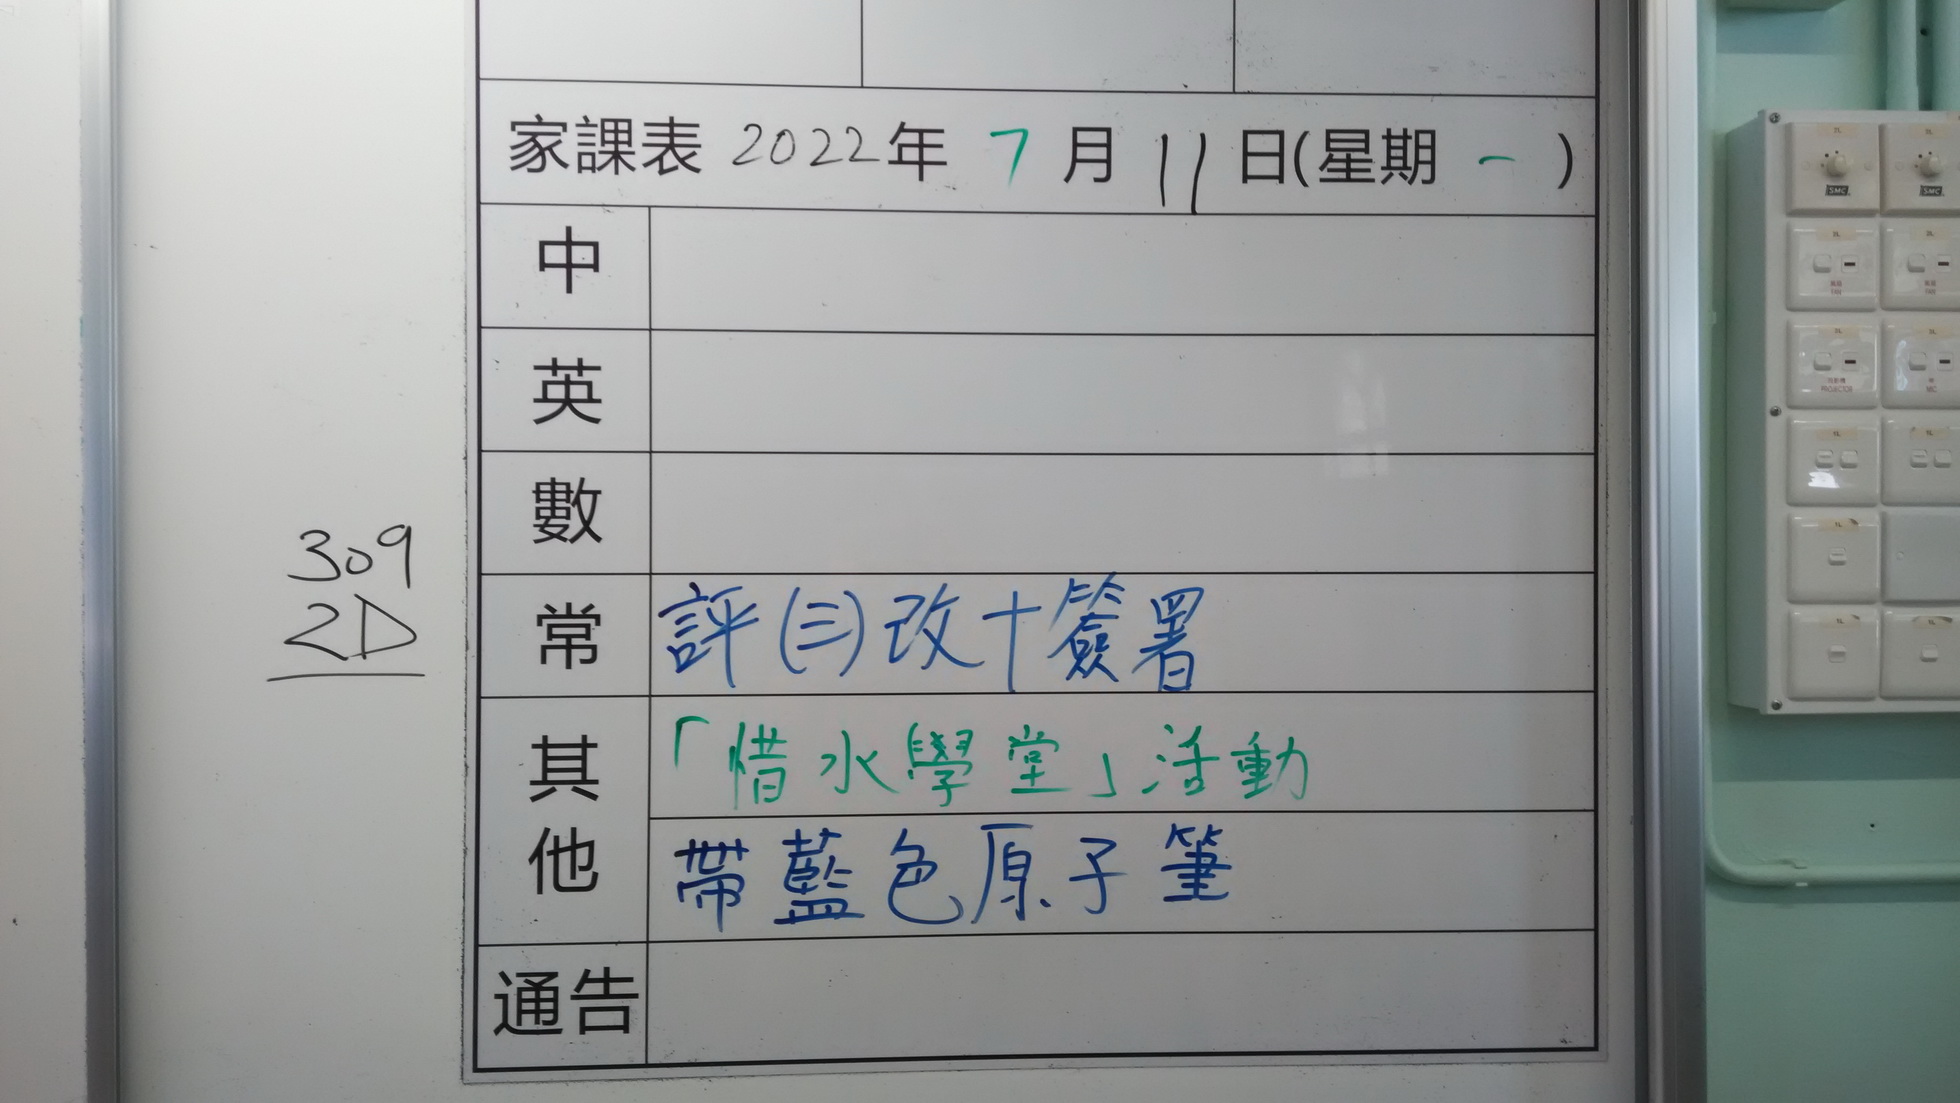 家課表 2022年 7月 11日(星期一)
中
英
數
常 評(三)改+簽署
309
2D
其他 「惜水學堂」活動
帶藍色原子筆
通告
SMC SMC